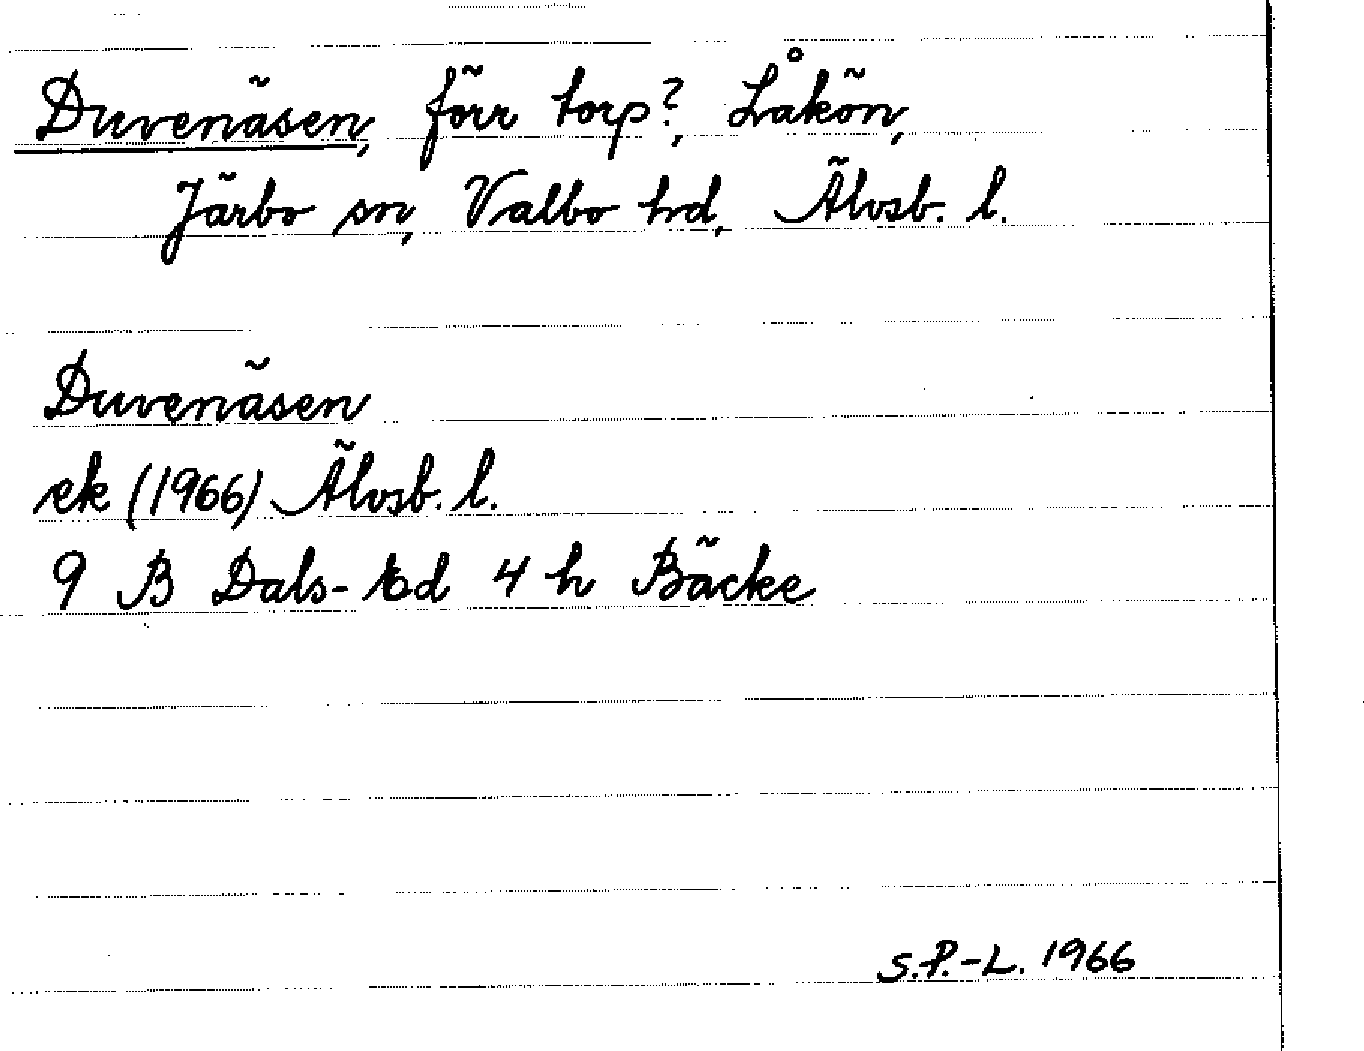 Duvenäsen, förr torp?, Låkön,
Järbo sn, Valbo hd, Älvsb. l.
Duvenäsen
ek (1966) Älvsb. l.
9 B Dals-Ed 4 h Bäcke
S.P.-L. 1966